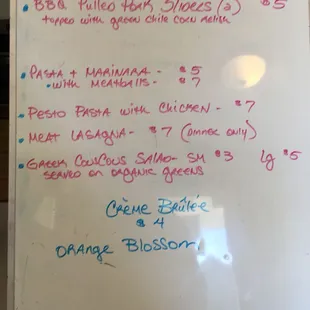 • BBQ Pulled Pork Sliders (2) $5
topped with green chile corn relish
• Pasta + Marinara - $5
• with meatballs - $7
• Pesto Pasta with Chicken - $7
• Meat Lasagna - $7 (dinner only)
• Greek CousCous Salad - SM $3 lg $5
served on organic greens
Crème Brûlée
$4
Orange Blossom